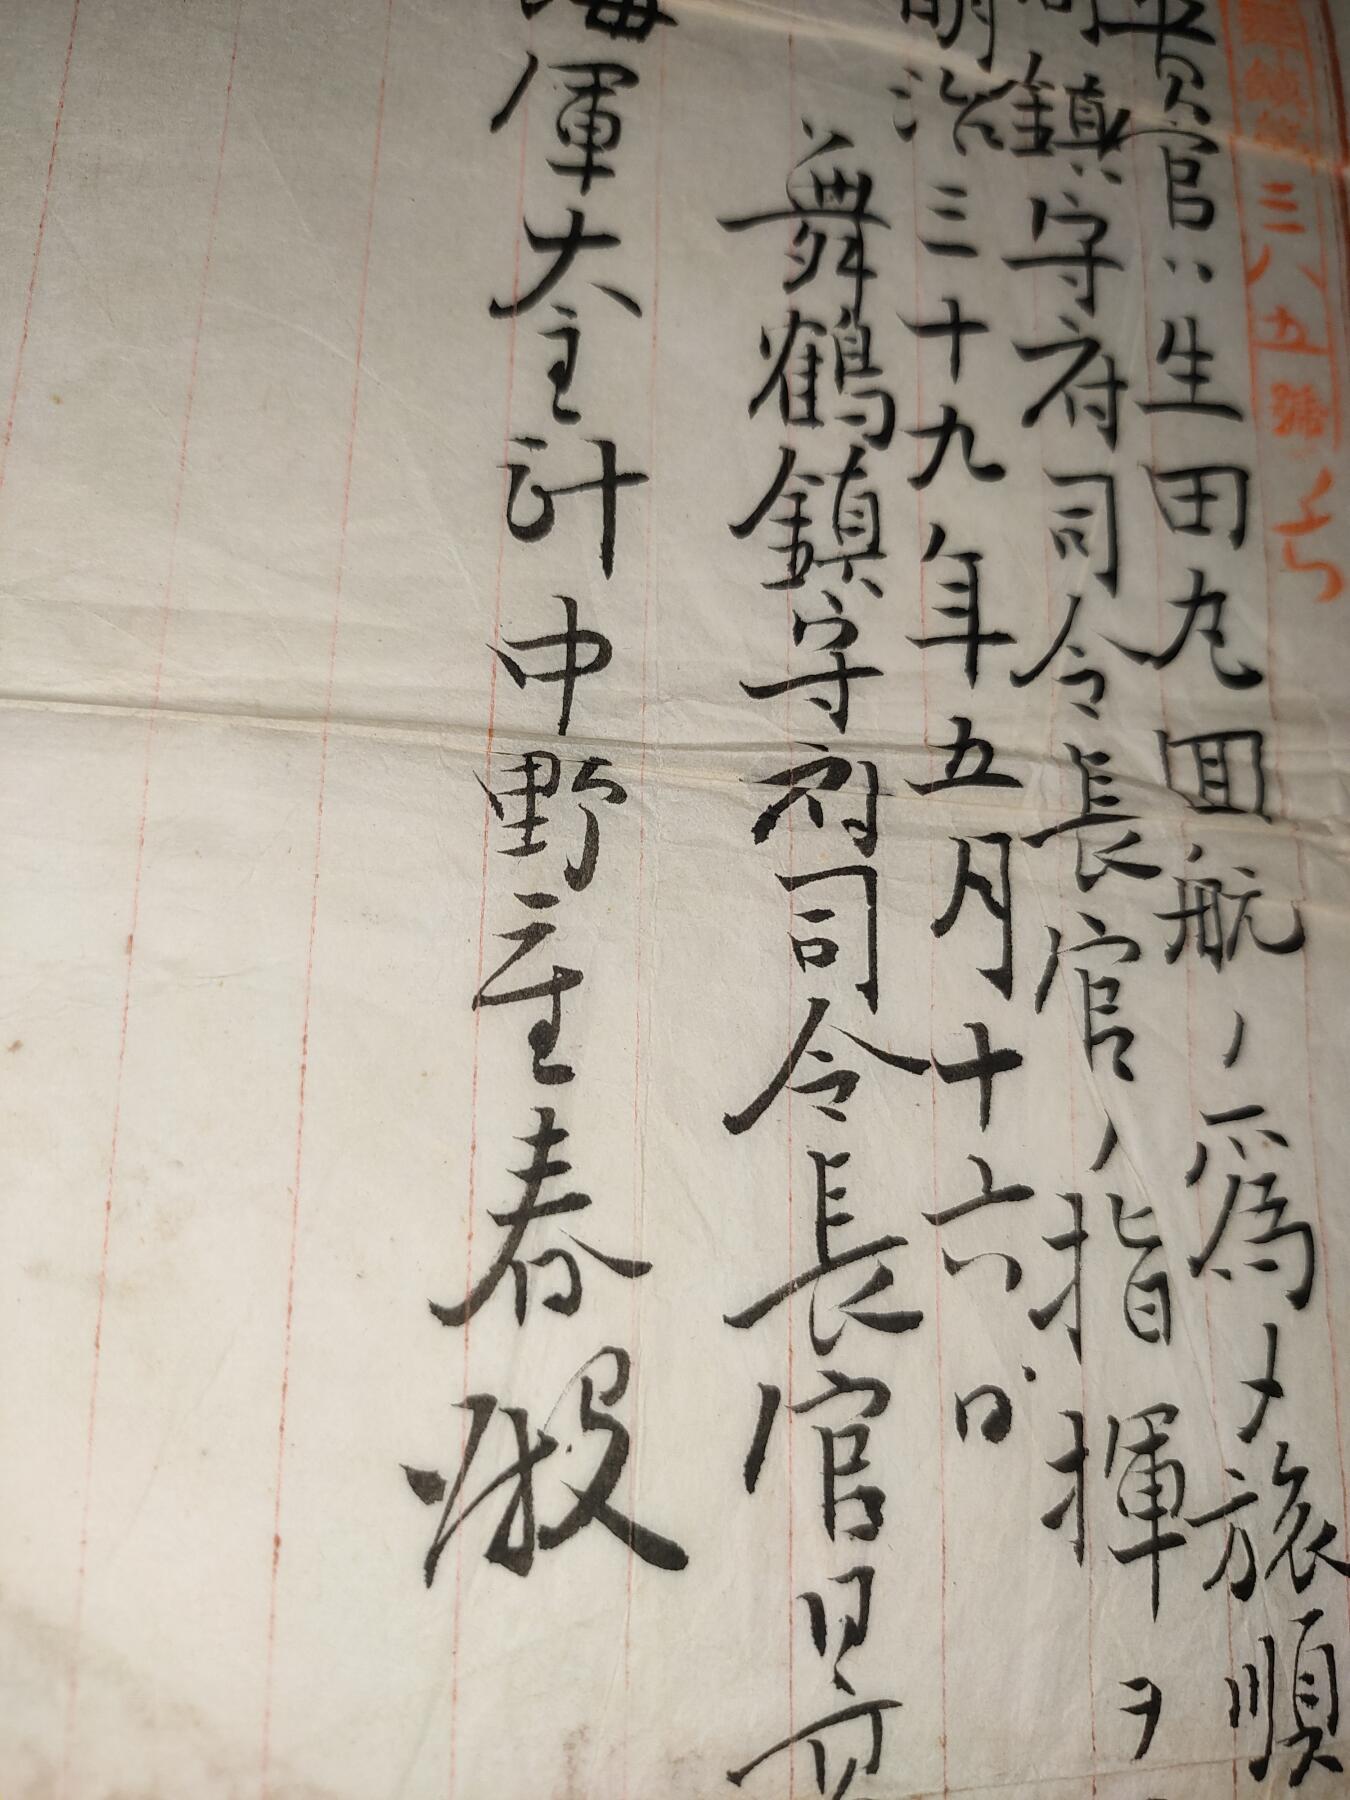 鎮第三八五號ノ
貴官ハ生田丸回航ノ爲メ旅順
鎮守府司令長官ノ指揮ヲ
明治三十九年五月十六日
舞鶴鎮守府司令長官日髙
海軍大主計中野金春殿